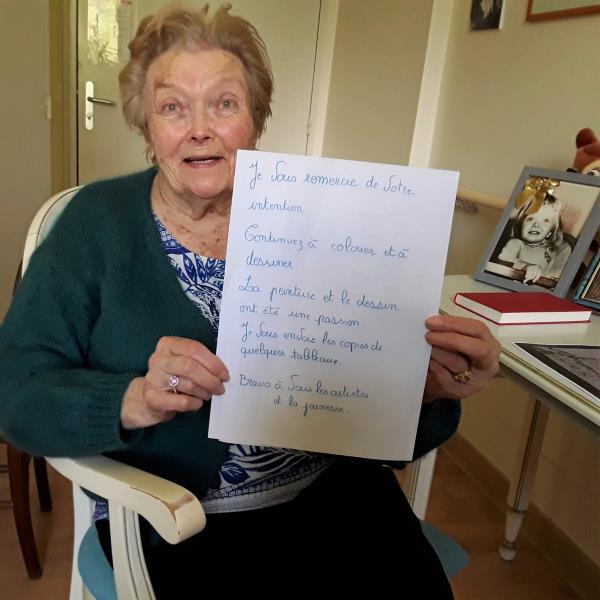 Je Vous remercie de Votre
intention.
Continuez à colorier et à
dessiner.
La peinture et le dessin
ont été une passion.
Je Vous envoie les copies de
quelques tableaux.
Bravo à Vous les artistes
et la jeunesse.